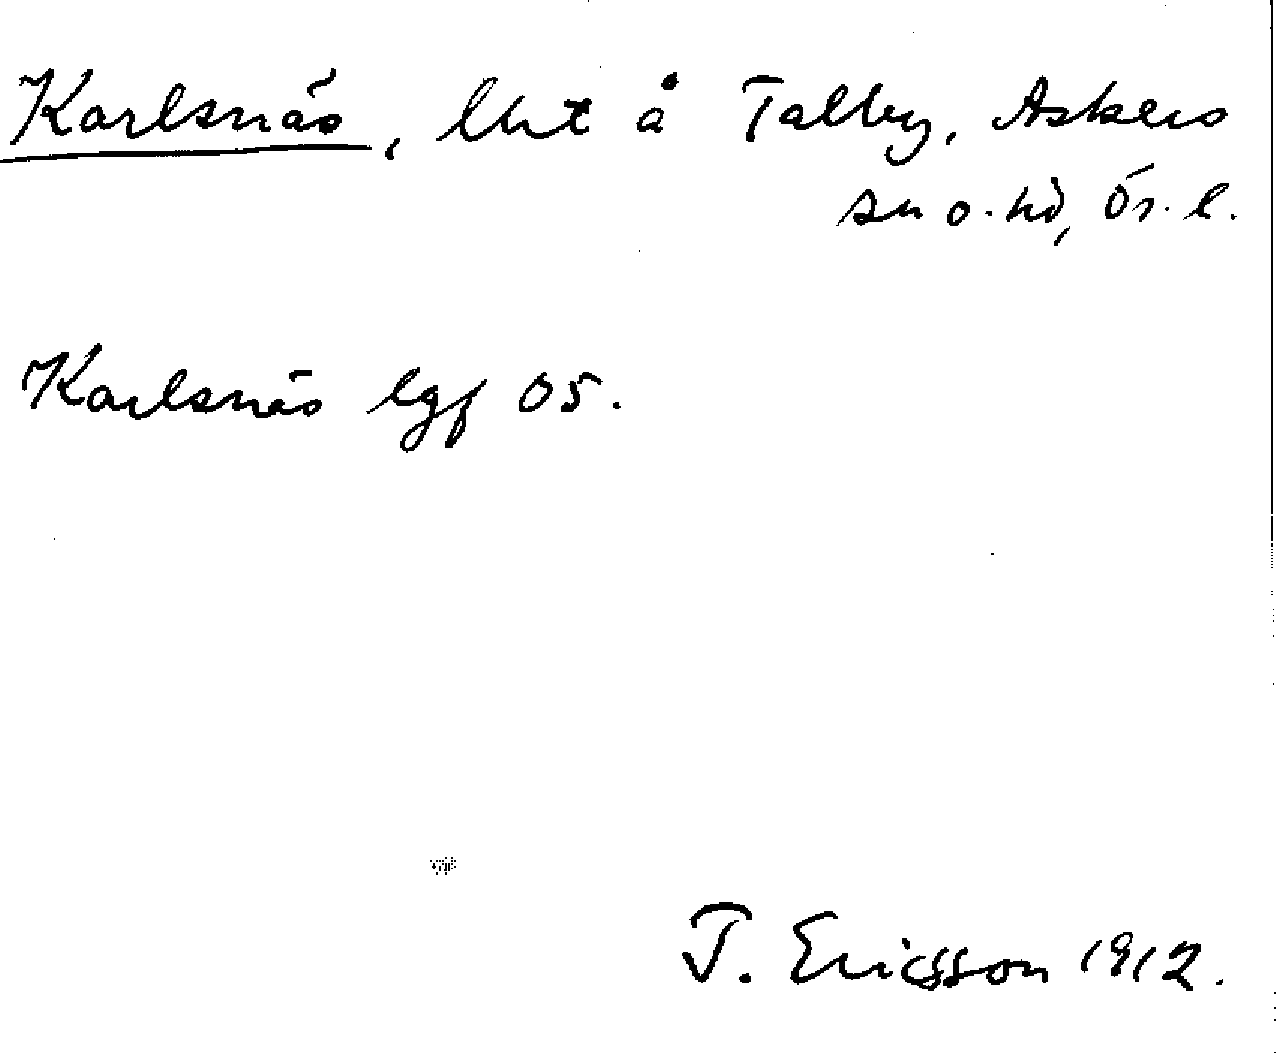 Karlsnäs, lht å Talby, Askers
sn o. hd, Ör. l.
Karlsnäs lgf 05.
J. Ericsson 1912.